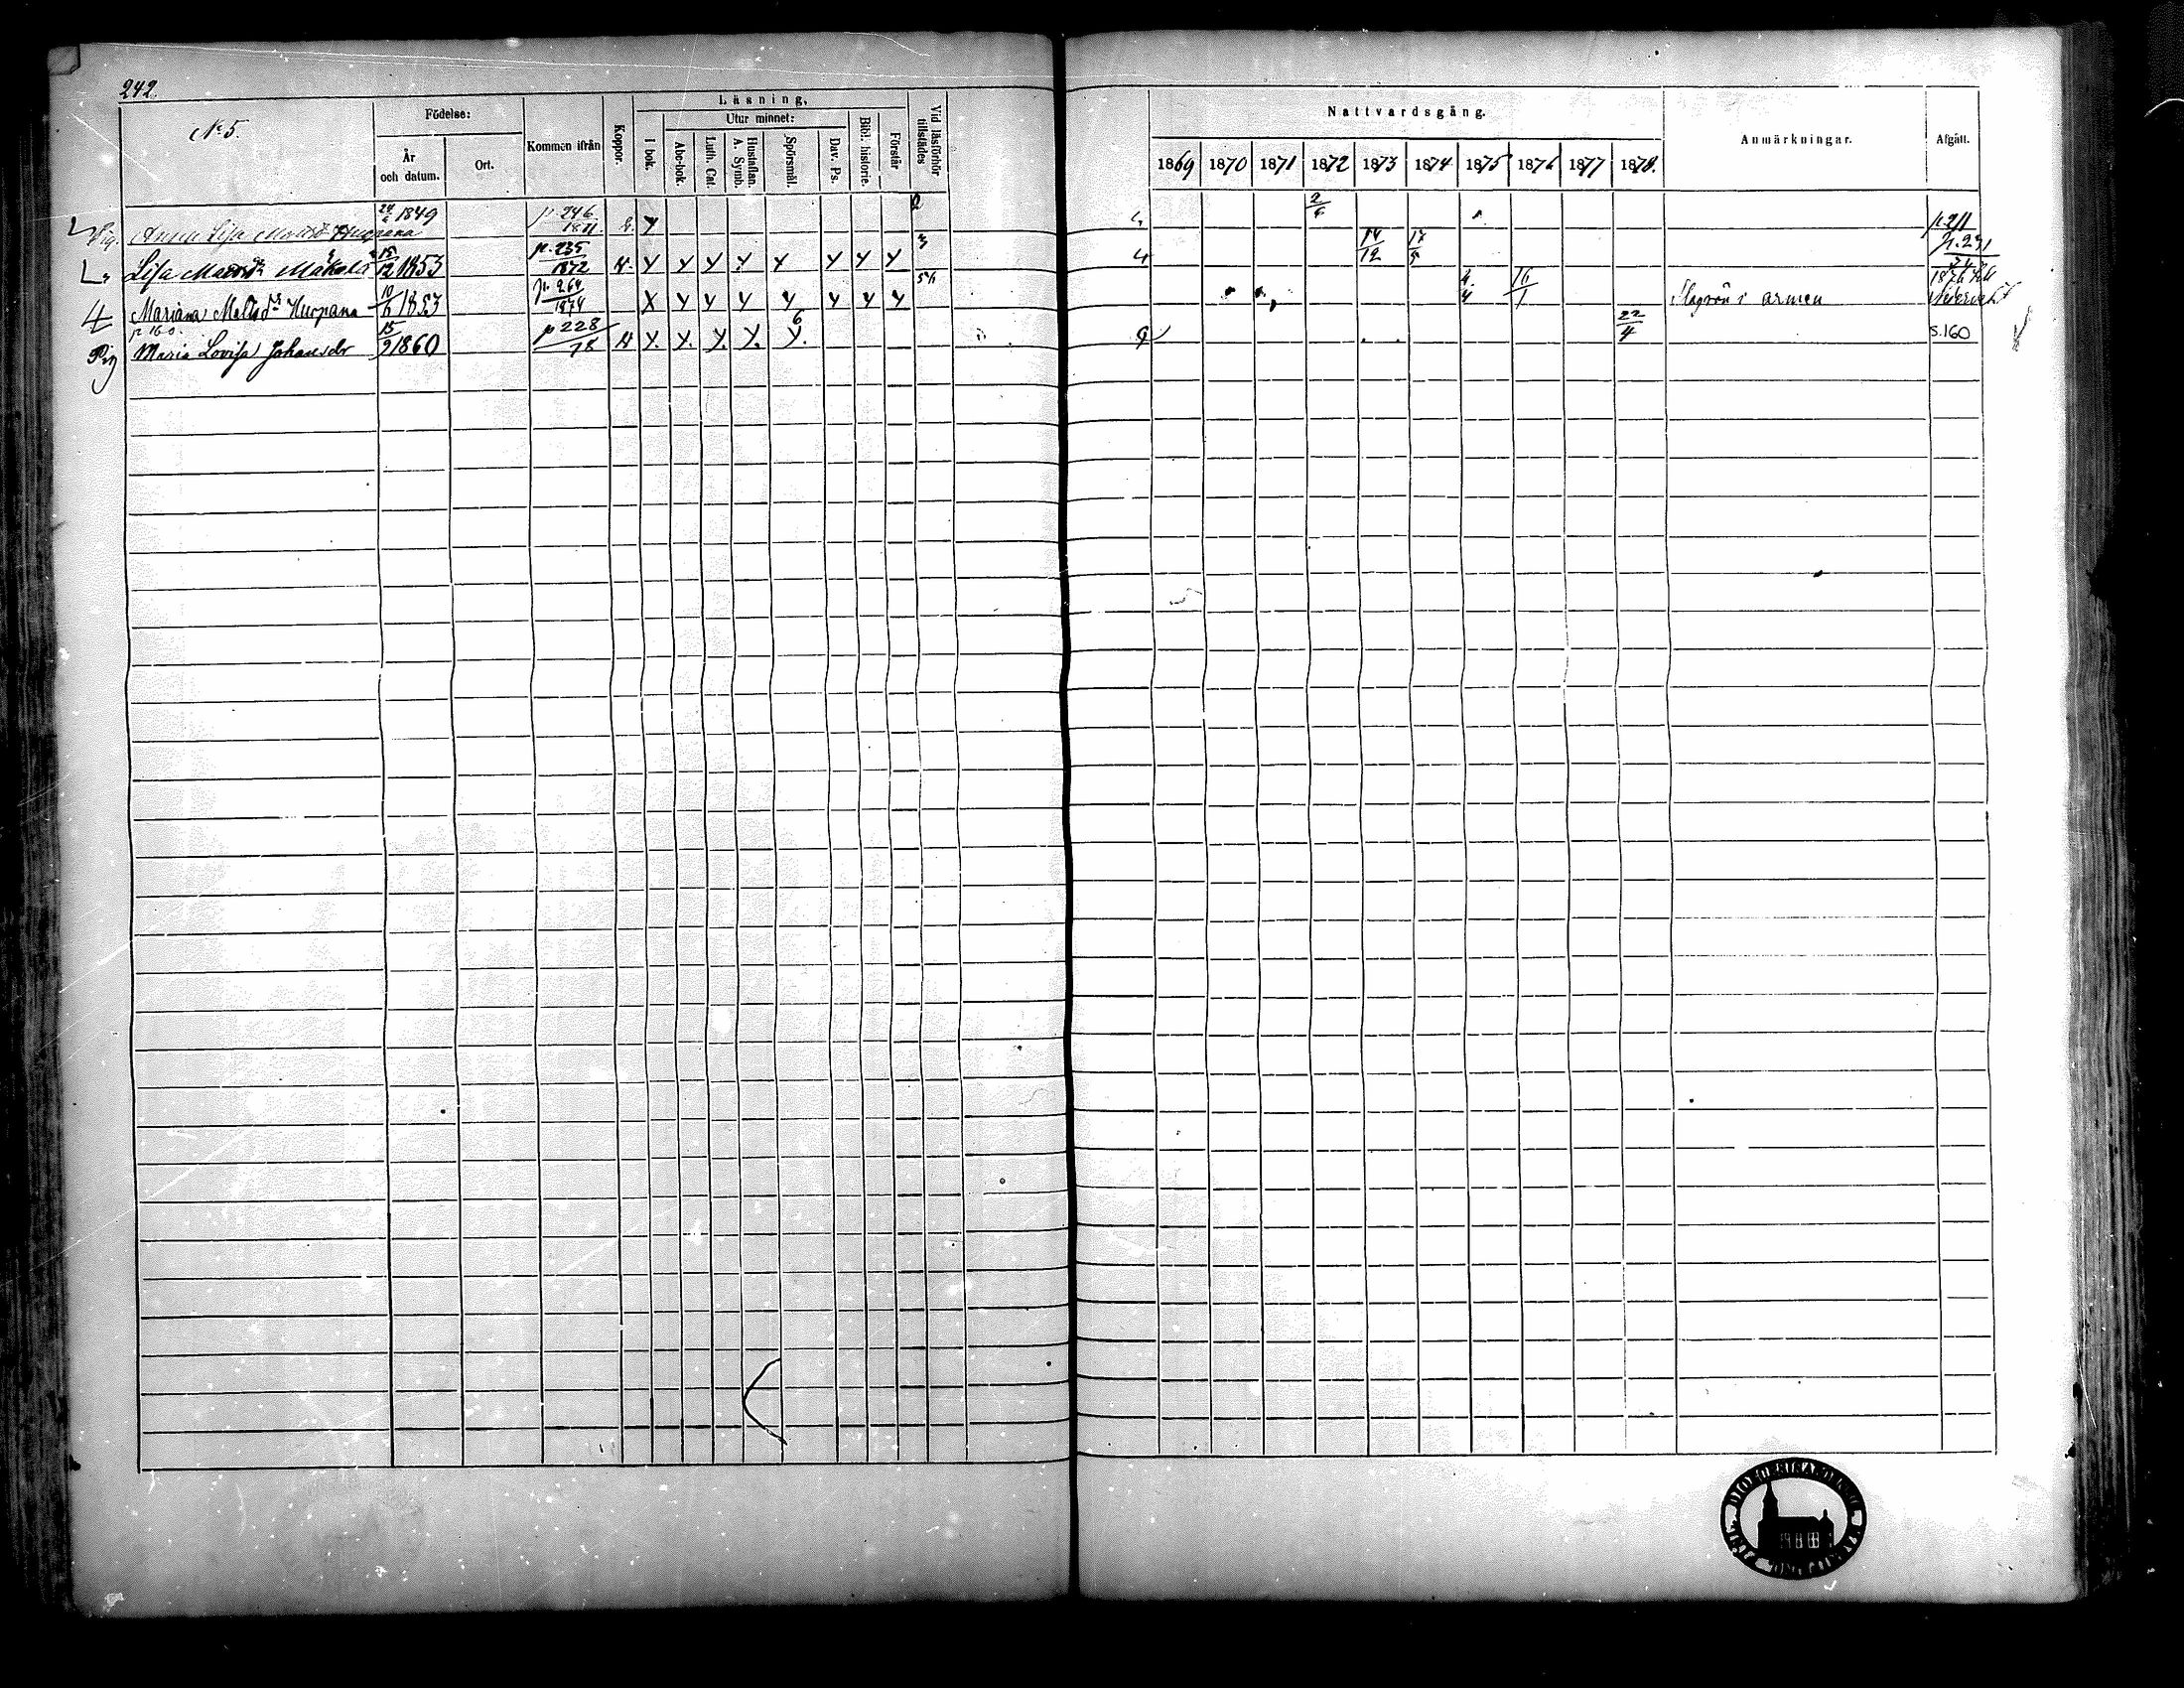 242.
No 5.
Födelse:
År och datum.
Ort.
Kommen ifrån
Koppor.
Läsning,
I bok.
Utur minnet:
Abc-bok.
Luth. Cat.
Hustaflan. A. Symb.
Spörsmål.
Dav. Ps.
Bibl. historie.
Förstår
Vid läsförhör tillstädes
Nattvardsgång.
1869 1870 1871 1872 1873 1874 1875 1876 1877 1878.
Anmärkningar.
Afgått.
Pig. Anna Lisa Huopana 24/6 1849 p. 246 1871 2/6 p. 211
Lisa Mäkelä 15/12 1853 p. 235 1872 3 4 14/12 17/5 p. 231
4 Mariana Huopana 10/6 1853 p. 264 1874 4/4 16/1 i armen
p 160.
Pig Maria Lovisa Johansdr 15/9 1860 p 228 78 6 22/4 s.160